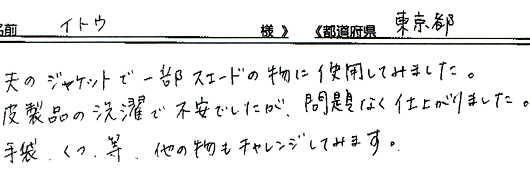 名前 イトウ 様 》 《都道府県 東京都
夫のジャケットで一部スエードの物に使用してみました。
皮製品の洗濯で不安でしたが、問題なく仕上がりました。
手袋、くつ、等、他の物もチャレンジしてみます。